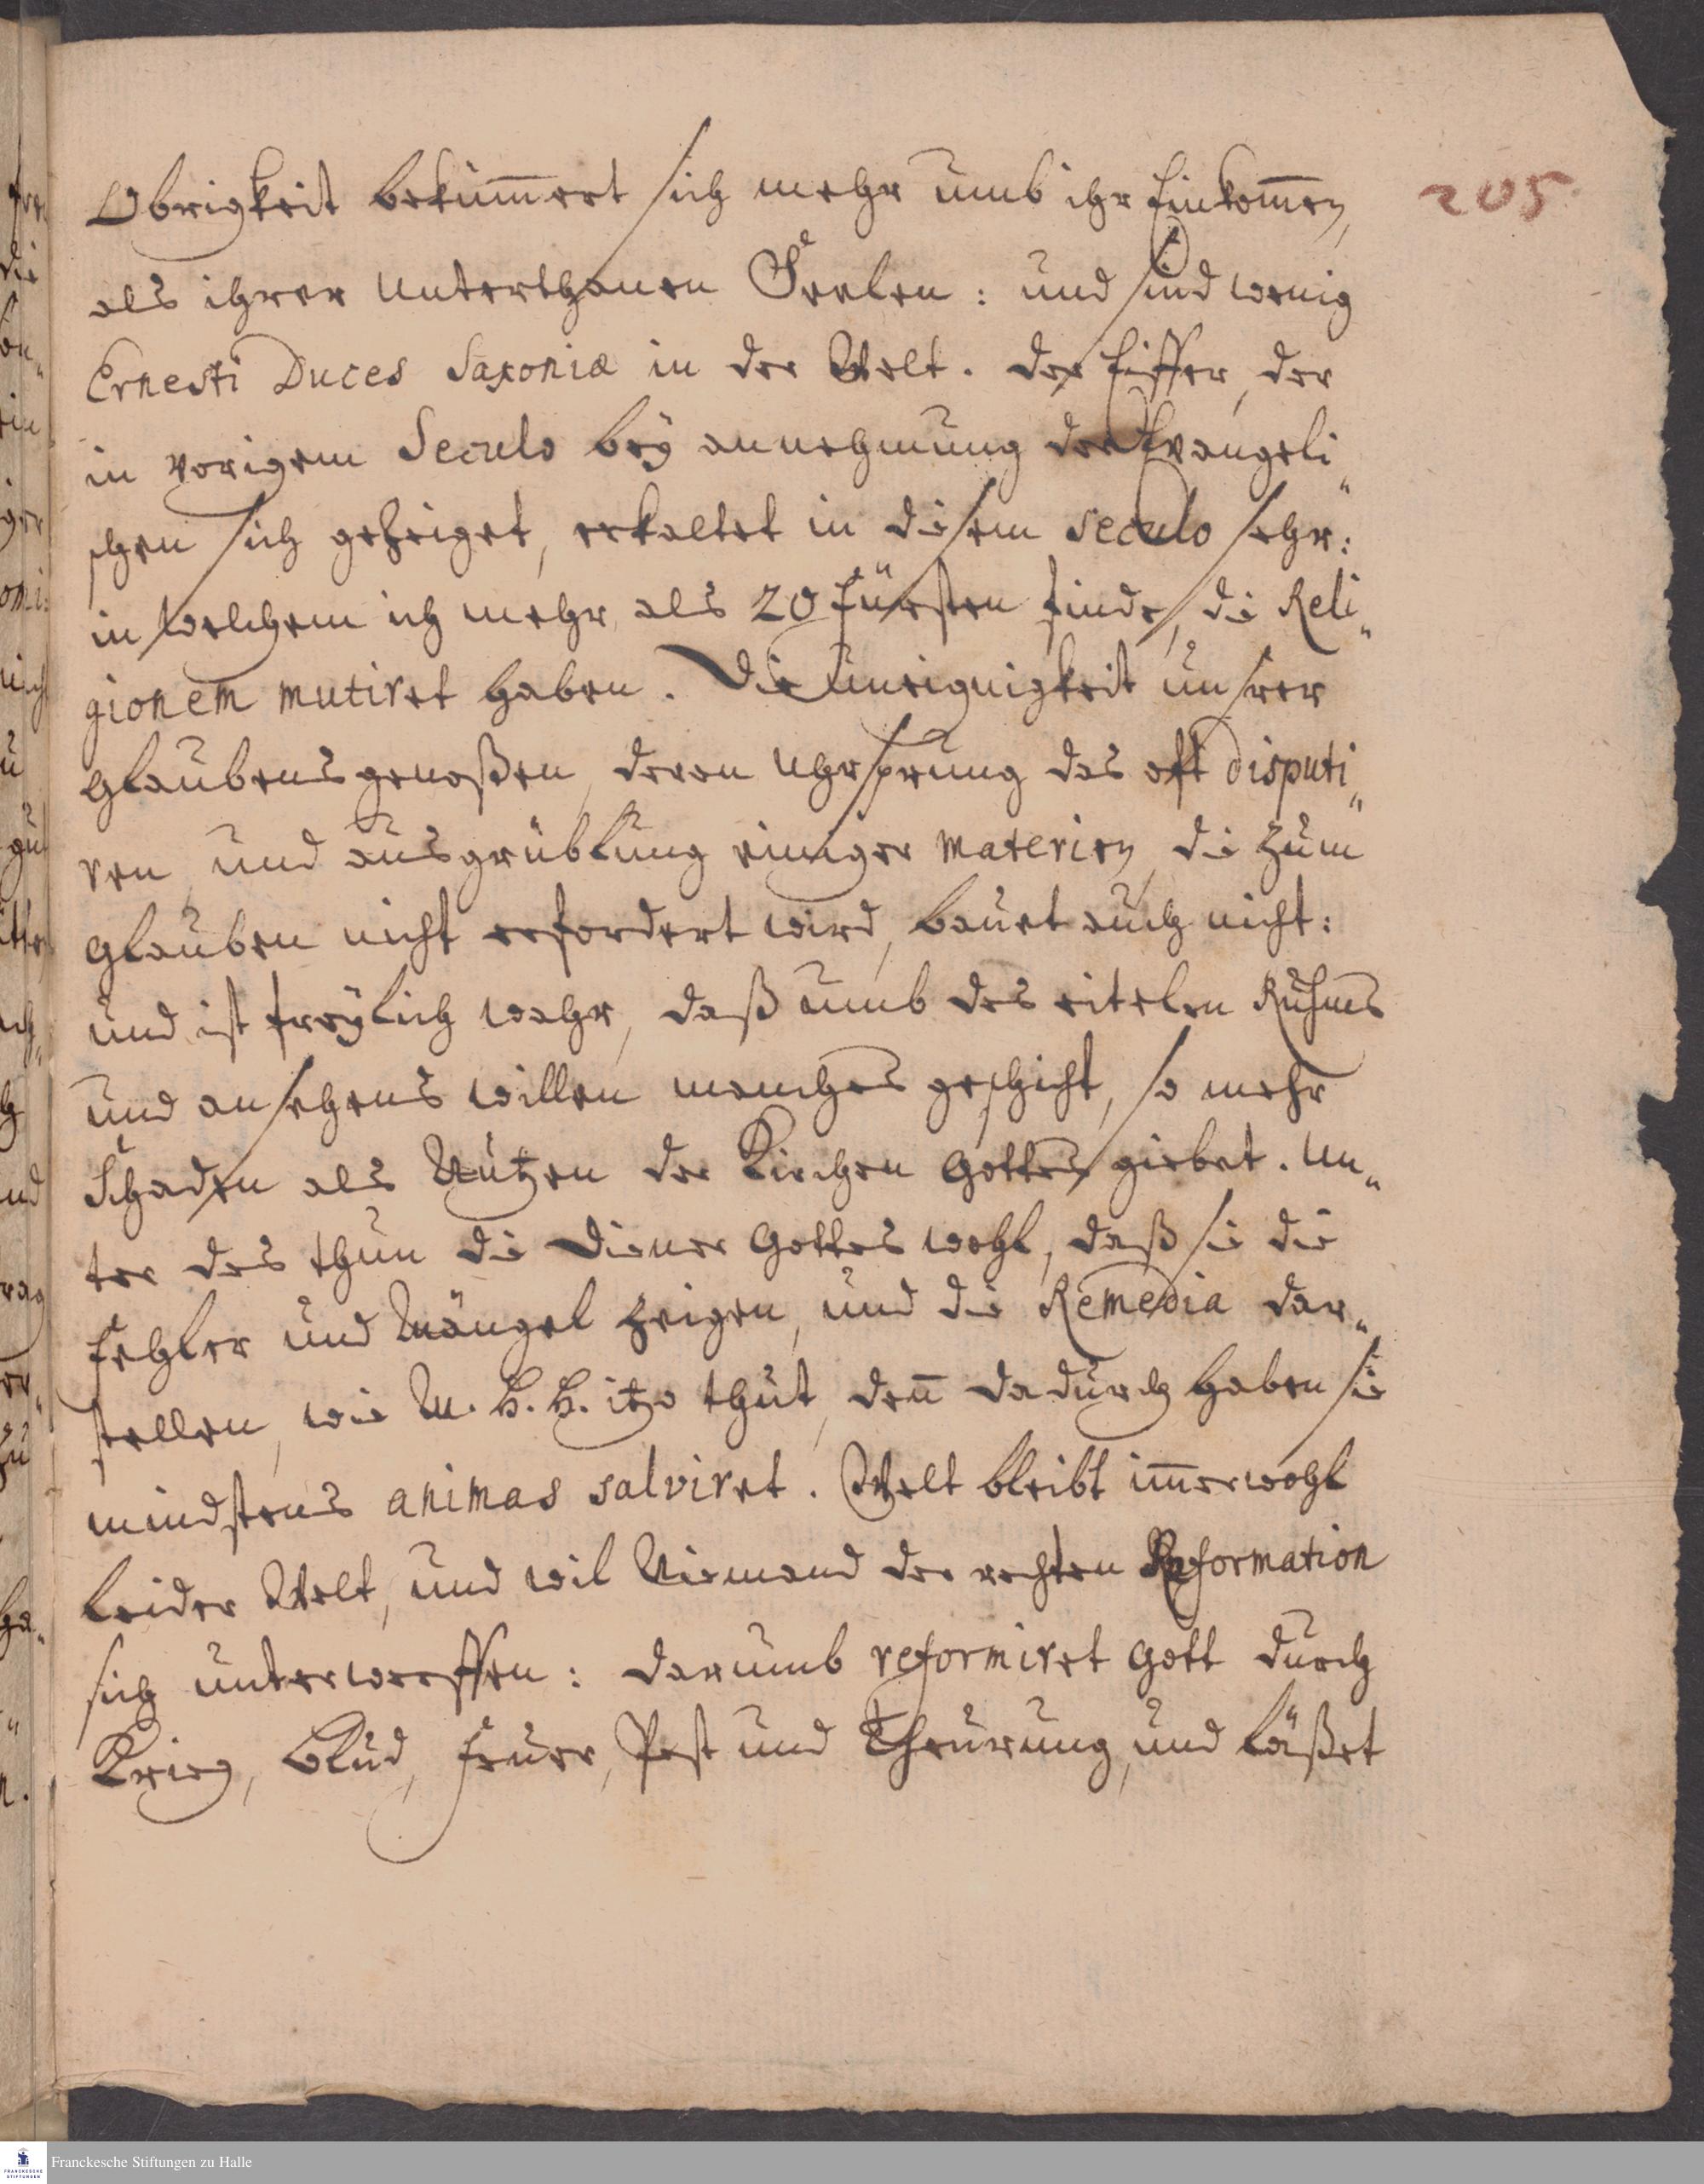 Obrigkeit bekümmert sich mehr umb ihr Einkom̅en, 205.
als ihrer Unterthanen Seelen: und sind wenig
Ernesti Duces Saxoniæ in der Welt. Der Eiffer, der
in vorigem Seculo beÿ annehmung der Evangeli„
schen sich gezeiget, erkaltet in diesem seculo sehr:
in welchem ich mehr als 20 Fürsten finde, die Reli„
gionem mutiret haben. Die Uneignigkeit unsrer
Glaubensgenoßen, deren Uhrsprung das oft disputi„
ren, und ausgrüblung einiger materien, die zum
Glauben nicht erfordert wird, bauet auch nicht:
und ist freÿlich wahr, daß umb des eitelen Ruhms
und ansehens willen manches geschicht, so mehr
Schaden als Nutzen der Kirchen Gottes giebet. Un„
ter des thun die Diener Gottes wohl, daß sie die
Fehler und Mängel zeigen, und die Remedia dar„
stellen, wie M. H. H. itzo thut, den̅ dadurch haben sie
mindstens animas salviret. Welt bleibt im̅erwohl
leider Welt, und wil Niemand der rechten Reformation
sich unterwerffen: darumb reformiret Gott durch
Krieg, Blud, Feuer, Pest und Theurung, und läßet
Franckesche Stiftungen zu Halle